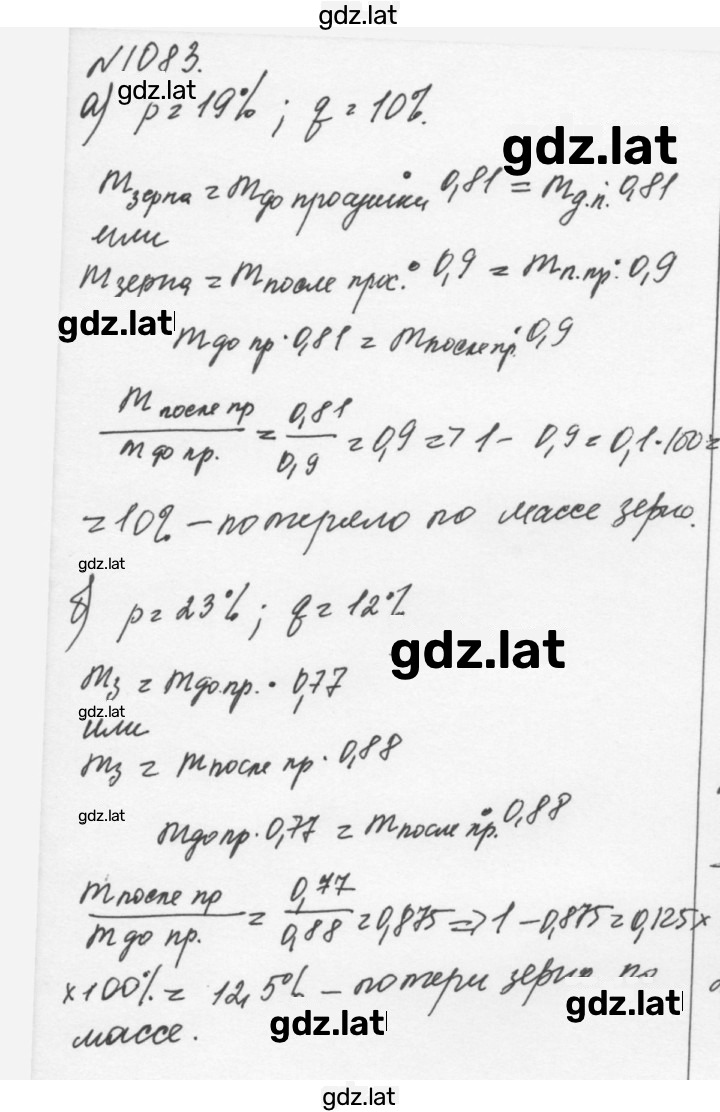 gdz.lat
№1083.
gdz.lat
а) p = 19% ; q = 10%.
gdz.lat
mзерна = mдо просушки · 0,81 = mд.п. · 0,81
или
mзерна = mпосле прос. · 0,9 = mп.пр. · 0,9
gdz.lat
mдо пр · 0,81 = mпосле пр. · 0,9
mпосле пр / mдо пр. = 0,81 / 0,9 = 0,9 => 1 - 0,9 = 0,1 · 100 =
= 10% – потеряло по массе зерно.
gdz.lat
б) p = 23% ; q = 12%
gdz.lat
mз = mдо пр. · 0,77
gdz.lat
или
mз = mпосле пр · 0,88
gdz.lat
mдо пр · 0,77 = mпосле пр. · 0,88
mпосле пр / mдо пр. = 0,77 / 0,88 = 0,875 => 1 - 0,875 = 0,125 ×
× 100% = 12,5% – потери зерна по
gdz.lat
массе.
gdz.lat
gdz.lat